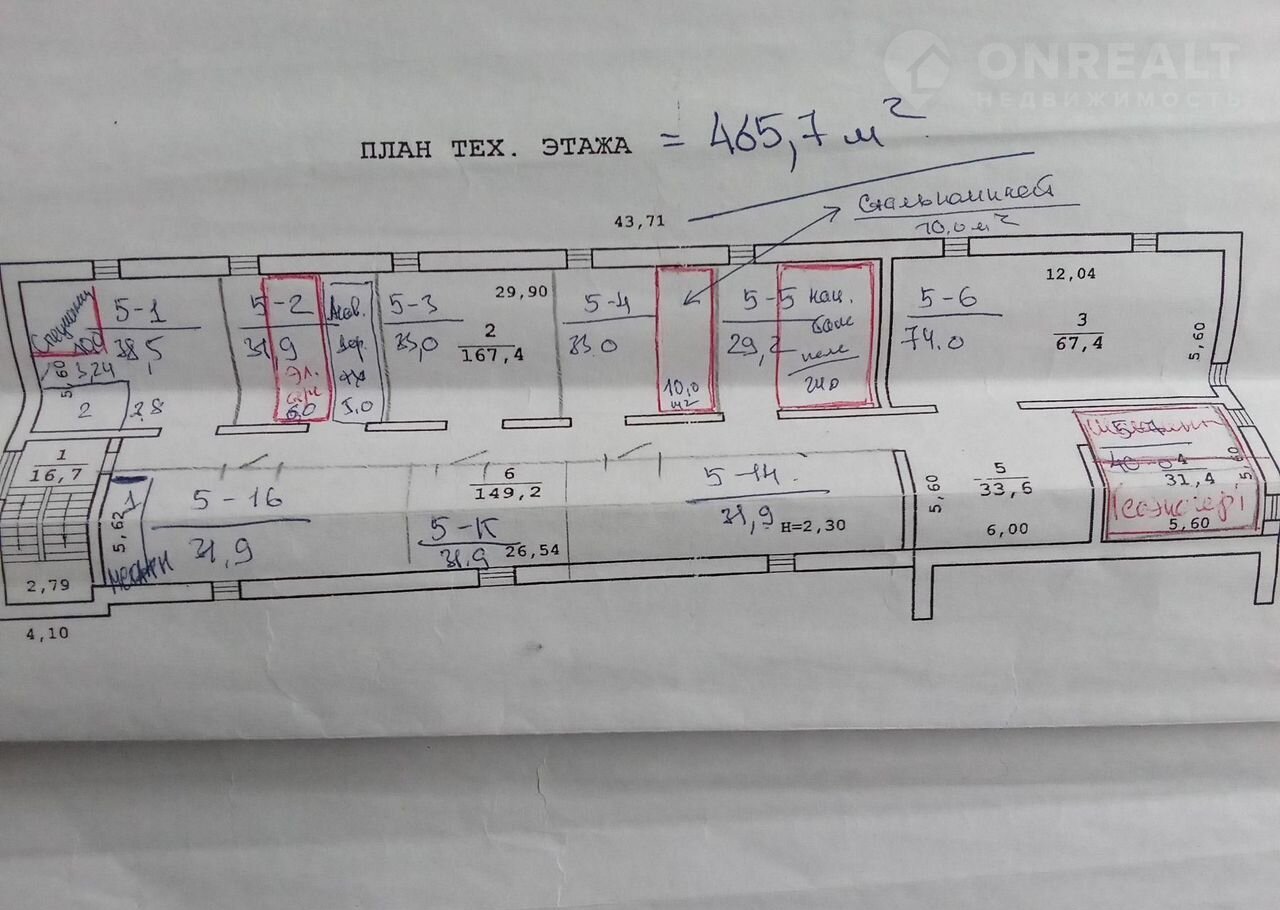 ONREALT
НЕДВИЖИМОСТЬ
ПЛАН ТЕХ. ЭТАЖА = 465,7 м²
43,71
10,0 м²
12,04
5-1
38,5
3,24
5,60
2
2,8
5-2
31,9
Эл.
6,0
5,0
5-3
33,0
29,90
2
167,4
5-4
33,0
10,0
м2
5-5
29,2
5-6
74.0
3
67,4
5,60
1
16,7
2,79
4,10
5,62
1
5-16
31,9
6
149,2
5-К
31.9
26,54
5-14.
31,9
Н=2,30
5,60
5
33,6
6,00
5-7
40-0
4
31,4
5,60
5,60